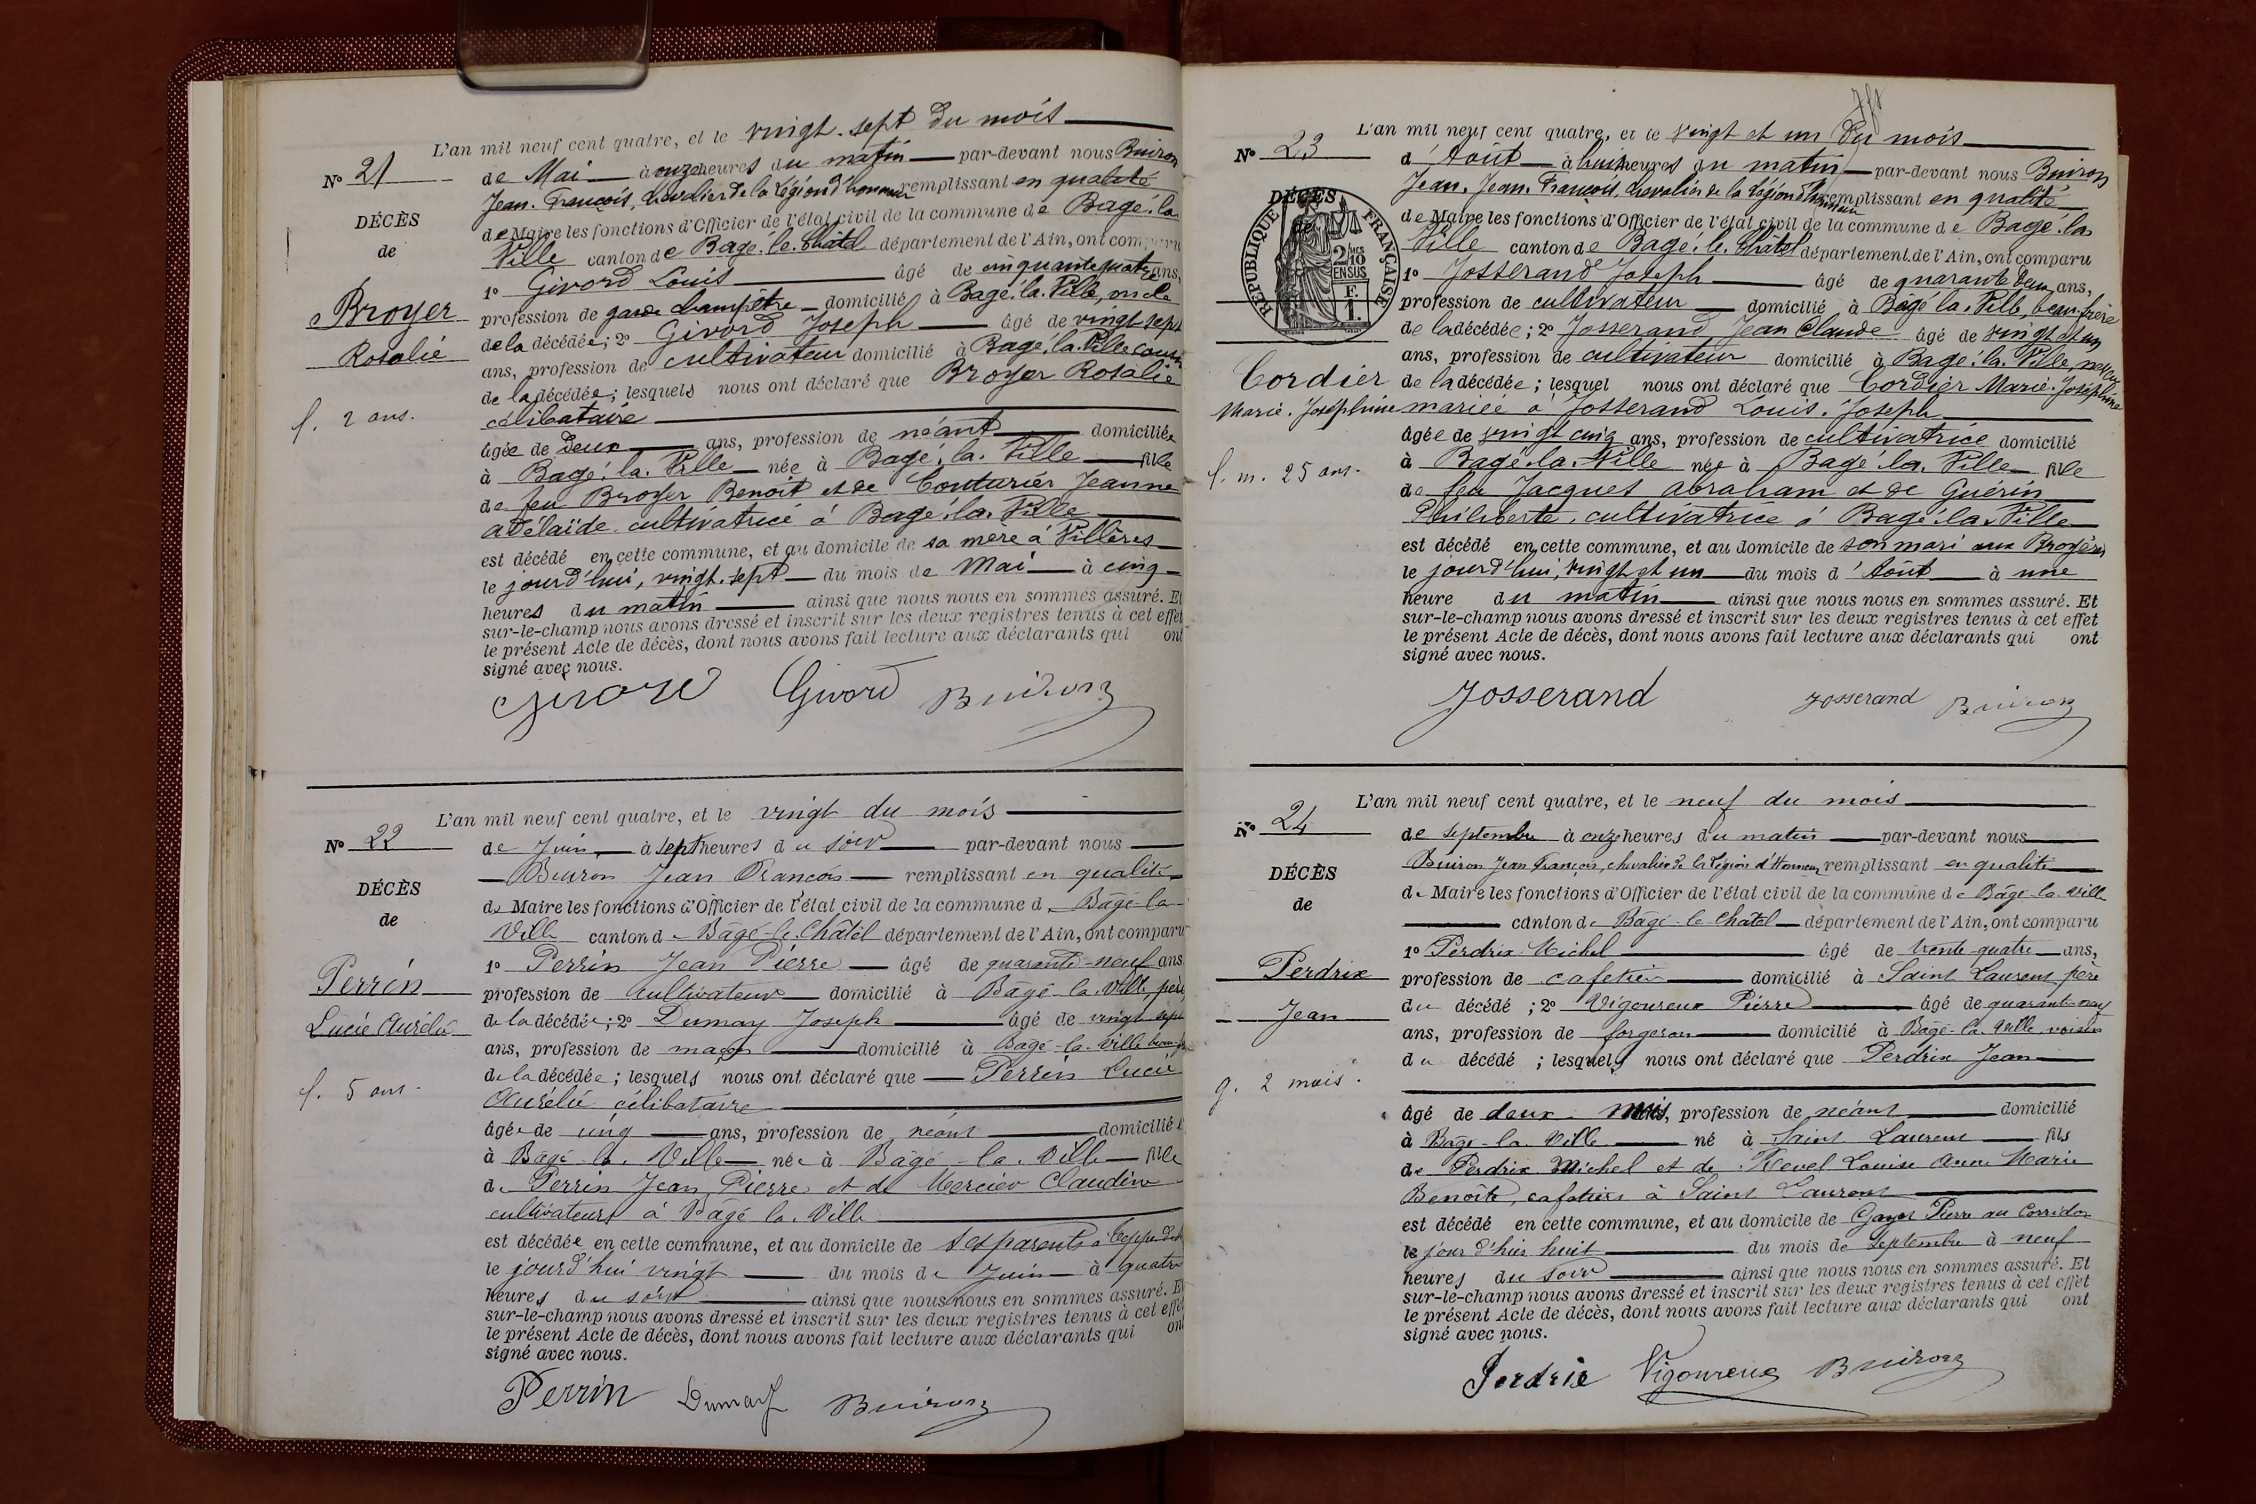 L'an mil neuf cent quatre, et le vingt-sept du mois
N° 21
de Mai à onze heures du matin par-devant nous Buiron
Jean-François, chevalier de la Légion d'honneur remplissant en qualité
DÉCÈS
de Maire les fonctions d'Officier de l'état civil de la commune de Bagé-la-
de
Ville canton de Bagé-le-Châtel département de l'Ain, ont comparu
1° Givord Louis âgé de cinquante quatre ans,
Broyer
profession de garde champêtre domicilié à Bagé-la-Ville, oncle
Rosalie
de la décédée; 2° Givord Joseph âgé de vingt sept
ans, profession de cultivateur domicilié à Bagé-la-Ville cousin
de la décédée; lesquels nous ont déclaré que Broyer Rosalie
f. 2 ans.
célibataire
âgée de deux ans, profession de néant domiciliée
à Bagé-la-Ville née à Bagé-la-Ville fille
de feu Broyer Benoit et de Couturier Jeanne
adélaïde cultivatrice à Bagé-la-Ville
est décédé en cette commune, et au domicile de sa mère à Villères
le jourd'hui, vingt-sept du mois de Mai à cinq
heures du matin ainsi que nous nous en sommes assuré. Et
sur-le-champ nous avons dressé et inscrit sur les deux registres tenus à cet effet
le présent Acte de décès, dont nous avons fait lecture aux déclarants qui ont
signé avec nous.
Givord Givord Buiron
L'an mil neuf cent quatre, et le vingt du mois
N° 22
de Juin à sept heures du soir par-devant nous
Buiron Jean François remplissant en qualité
DÉCÈS
de Maire les fonctions d'Officier de l'état civil de la commune de Bâgé-la-
de
Ville canton de Bâgé-le-Châtel département de l'Ain, ont comparu
1° Perrin Jean Pierre âgé de quarante-neuf ans
Perrin
profession de cultivateur domicilié à Bâgé-la-Ville, père
Lucie Aurélie
de la décédée; 2° Dumay Joseph âgé de vingt sept
ans, profession de maçon domicilié à Bagé-la-Ville
de la décédée; lesquels nous ont déclaré que Perrin Lucie
f. 5 ans.
Aurélie célibataire
âgée de cinq ans, profession de néant domiciliée
à Bâgé-la-Ville née à Bâgé-la-Ville fille
de Perrin Jean Pierre et de Mercier Claudine
cultivateurs à Bâgé la Ville
est décédée en cette commune, et au domicile de ses parents à
le jourd'hui vingt du mois de Juin à quatre
heures du soir ainsi que nous nous en sommes assuré. Et
sur-le-champ nous avons dressé et inscrit sur les deux registres tenus à cet effet
le présent Acte de décès, dont nous avons fait lecture aux déclarants qui ont
signé avec nous.
Perrin Dumay Buiron
L'an mil neuf cent quatre, et le vingt et un du mois
N° 23
d'Août à huit heures du matin par-devant nous Buiron
Jean-Jean-François, chevalier de la Légion d'honneur remplissant en qualité
DÉCÈS
de Maire les fonctions d'Officier de l'état civil de la commune de Bagé-la-
de
RÉPUBLIQUE FRANÇAISE
2/10 EN SUS
F.
1.
Ville canton de Bagé-le-Châtel département de l'Ain, ont comparu
1° Josserand Joseph âgé de quarante deux ans,
profession de cultivateur domicilié à Bâgé-la-Ville, beau-frère
de la décédée; 2° Josserand Jean Claude âgé de vingt et un
ans, profession de cultivateur domicilié à Bagé-la-Ville, neveu
Cordier
de la décédée; lesquel nous ont déclaré que Cordier Marie-Joséphine
Marie-Joséphine
mariée à Josserand Louis-Joseph
âgée de vingt cinq ans, profession de cultivatrice domicilié
f. m. 25 ans.
à Bagé-la-Ville née à Bagé-la-Ville fille
de feu Jacques Abraham et de Guérin
Philiberte, cultivatrice à Bagé-la-Ville
est décédé en cette commune, et au domicile de son mari aux Broyers
le jourd'hui, vingt et un du mois d'Août à une
heure du matin ainsi que nous nous en sommes assuré. Et
sur-le-champ nous avons dressé et inscrit sur les deux registres tenus à cet effet
le présent Acte de décès, dont nous avons fait lecture aux déclarants qui ont
signé avec nous.
Josserand Josserand Buiron
L'an mil neuf cent quatre, et le neuf du mois
N° 24
de septembre à onze heures du matin par-devant nous
Buiron Jean François, chevalier de la Légion d'Honneur remplissant en qualité
DÉCÈS
de Maire les fonctions d'Officier de l'état civil de la commune de Bâgé-la-Ville
de
canton de Bâgé-le-Châtel département de l'Ain, ont comparu
1° Perdrix Michel âgé de trente-quatre ans,
Perdrix
profession de cafetier domicilié à Saint Laurent père
Jean
du décédé; 2° Vigoureux Pierre âgé de quarante neuf
ans, profession de forgeron domicilié à Bâgé-la-Ville voisin
du décédé; lesquels nous ont déclaré que Perdrix Jean
g. 2 mois.
âgé de deux mois, profession de néant domicilié
à Bâgé-la-Ville né à Saint Laurent fils
de Perdrix Michel et de Revel Louise Anne Marie
Benoîte, cafetiers à Saint Laurent
est décédé en cette commune, et au domicile de Gayet Pierre au Corridor
le jour d'hier huit du mois de septembre à neuf
heures du soir ainsi que nous nous en sommes assuré. Et
sur-le-champ nous avons dressé et inscrit sur les deux registres tenus à cet effet
le présent Acte de décès, dont nous avons fait lecture aux déclarants qui ont
signé avec nous.
Perdrix Vigoureux Buiron